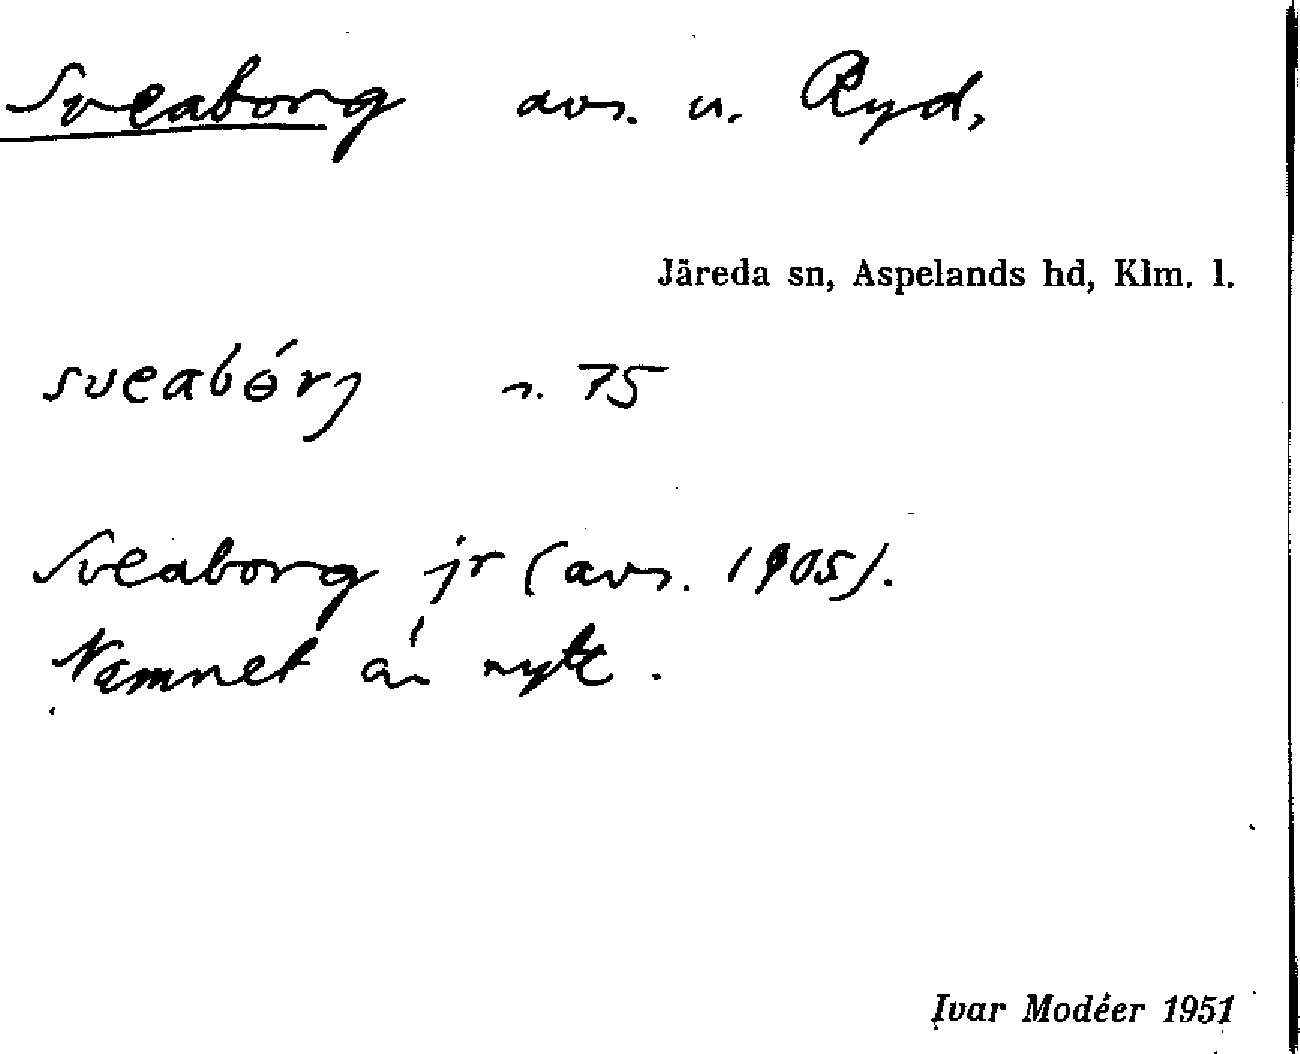 Sveaborg avs. u. Ryd,
Järeda sn, Aspelands hd, Klm. l.
sveabɵ́rj n. 75
Sveaborg jr (avs. 1905).
Namnet är nytt.
Ivar Modéer 1951